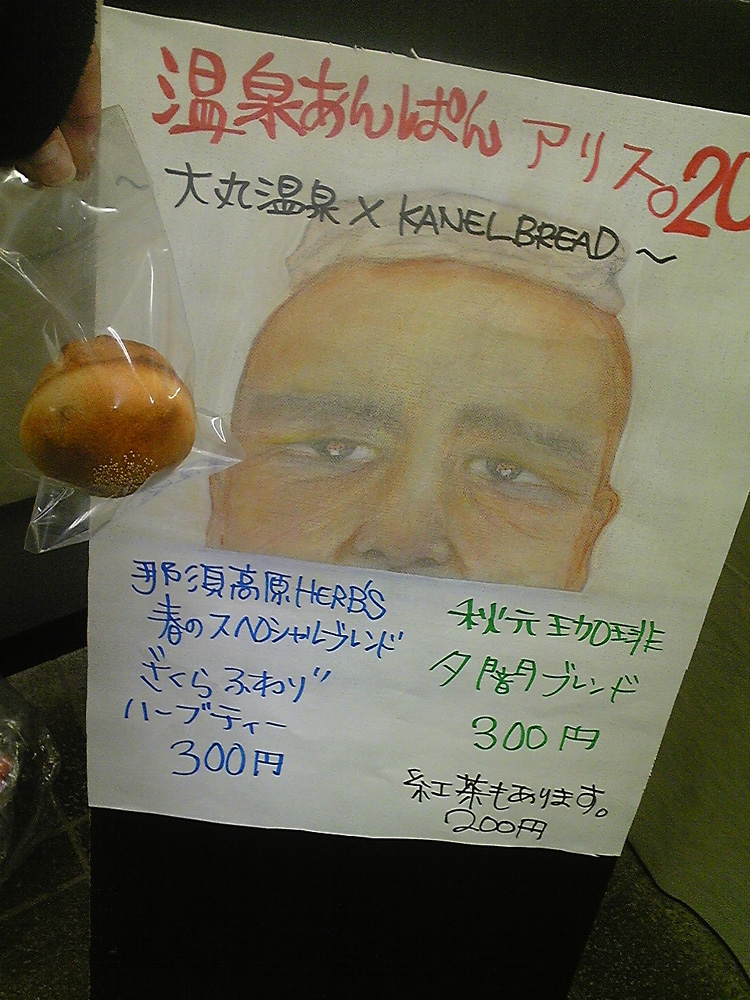 温泉あんぱん アリス。20
～大丸温泉 X KANELBREAD～
那須高原HERB'S
春のスペシャルブレンド
"さくらふわり"
ハーブティー
300円
秋元珈琲
夕闇ブレンド
300円
紅茶もあります。
200円